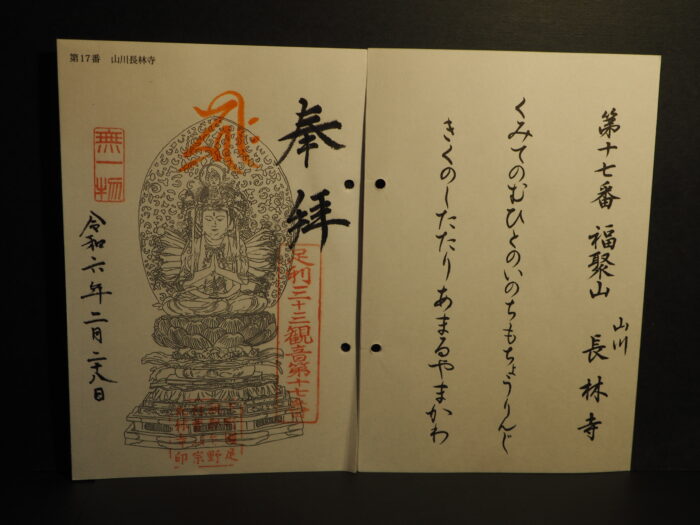 第十七番 福聚山 山川 長林寺
くみてのむひとのいのちもちょうりんじ
きくのしたたりあまるやまかわ
第17番 山川長林寺
奉拝
足利三十三観音第十七番
無一物
令和六年二月二十八日